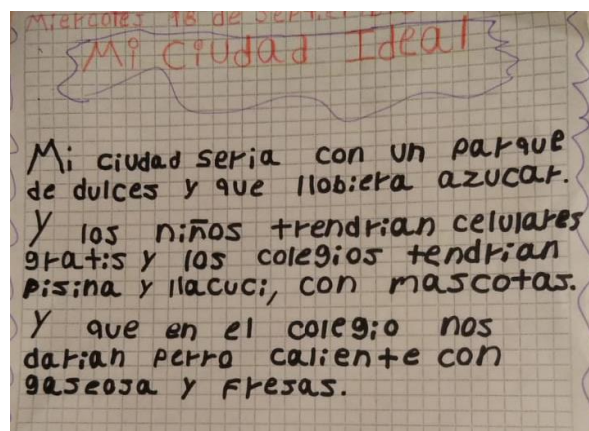 Miercoles 18 de
Mi Ciudad Ideal
Mi ciudad seria con un parque
de dulces y que llobiera azucar.
Y los niños trendrian celulares
gratis y los colegios tendrian
Pisina y llacuci, con mascotas.
Y que en el colegio nos
darian perro caliente con
gaseosa y fresas.